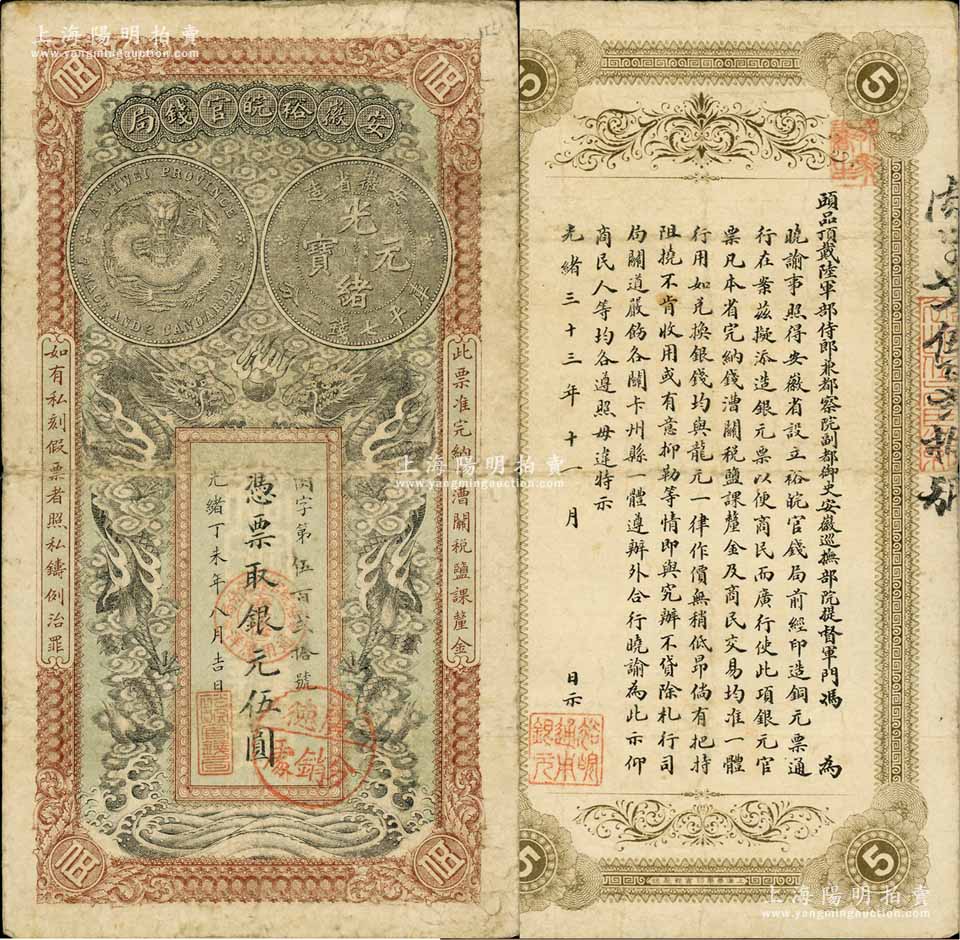 上海陽明拍賣
www.yangmingauction.com
伍
伍
局錢官皖裕徽安
ANHWEI PROVINCE
7 MACE AND 2 CANDAREENS
造省徽安
光緒元寶
庫平七錢二分
此票准完納漕關稅鹽課釐金
如有私刻假票者照私鑄例治罪
字第伍百貳拾號
憑票取銀元伍圓
光緒丁未年八月吉日
伍
伍
5
5
頭品頂戴陸軍部侍郎兼都察院副都御史安徽巡撫部院提督軍門馮 為
曉諭事照得安徽省設立裕皖官錢局前經印造銅元票通
行在案茲擬添造銀元票以便商民而廣行使此項銀元官
票凡本省完納錢漕關稅鹽課釐金及商民交易均准一體
行用如兌換銀錢均與龍元一律作價無稍低昂倘有把持
阻撓不肯收用或有意抑勒等情即與究辦不貸除札行司
局關道嚴飭各關卡州縣一體遵辦外合行曉諭為此示仰
商民人等均各遵照毋違特示
光緒三十三年十一月 日示
裕皖通用銀元
5
5
上海陽明拍賣
www.yangmingauction.com
上海陽明拍賣
www.yangmingauction.com